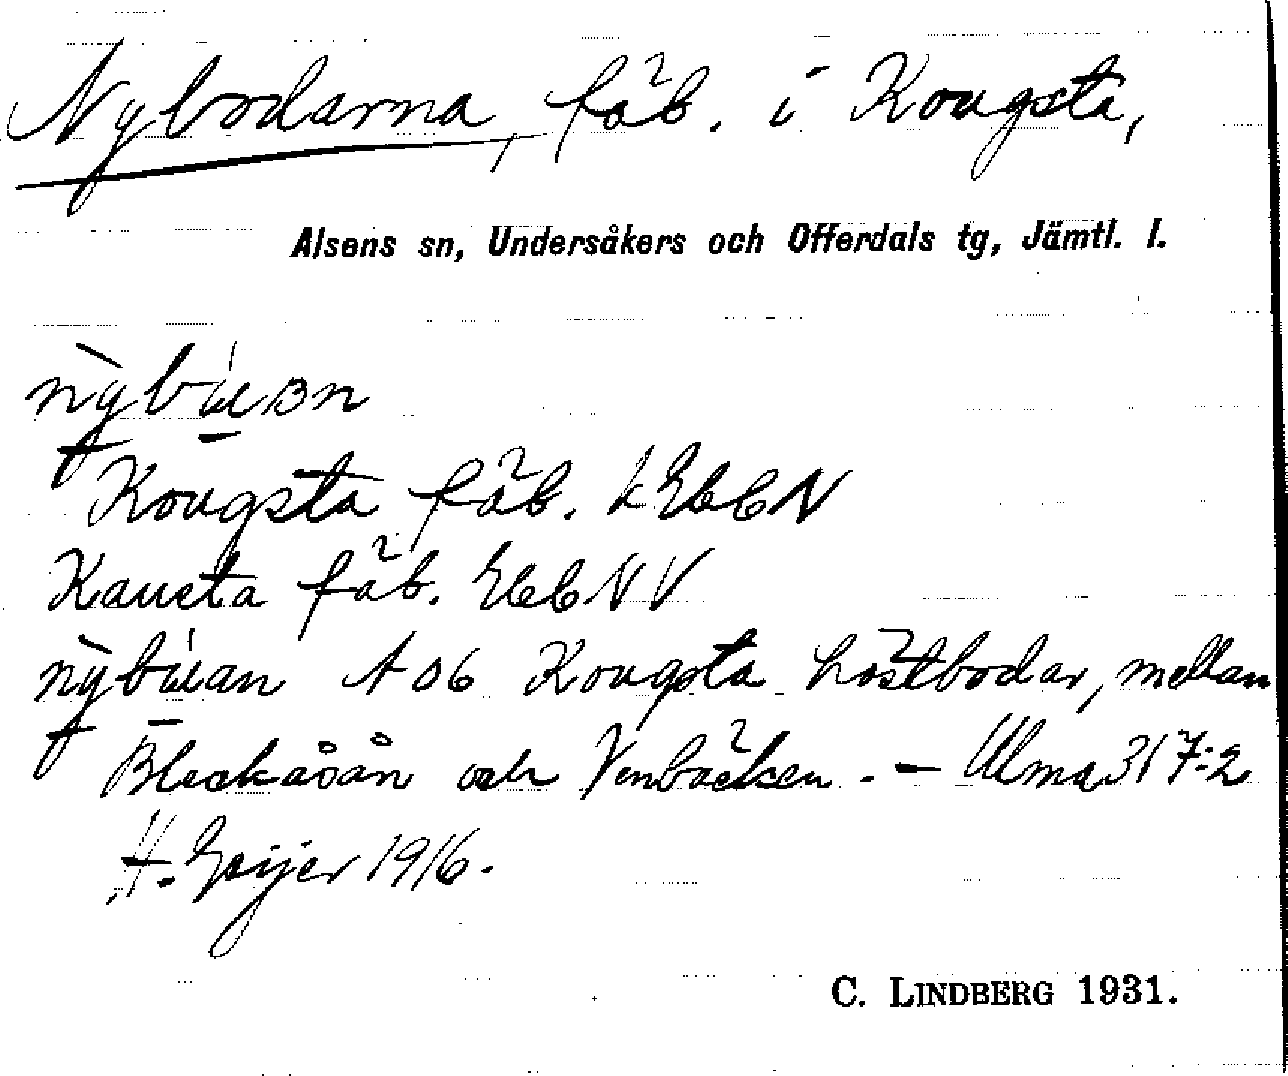 Nybodarna, fäb. i Kougsta,
Alsens sn, Undersåkers och Offerdals tg, Jämtl. l.
Kougsta fäb.
Kausta fäb.
A 06 Kougsta höstbodar, mellan
Bleckåsån och Vinbäcken. - Ulma 317:2
H. Geijer 1916.
C. LINDBERG 1931.